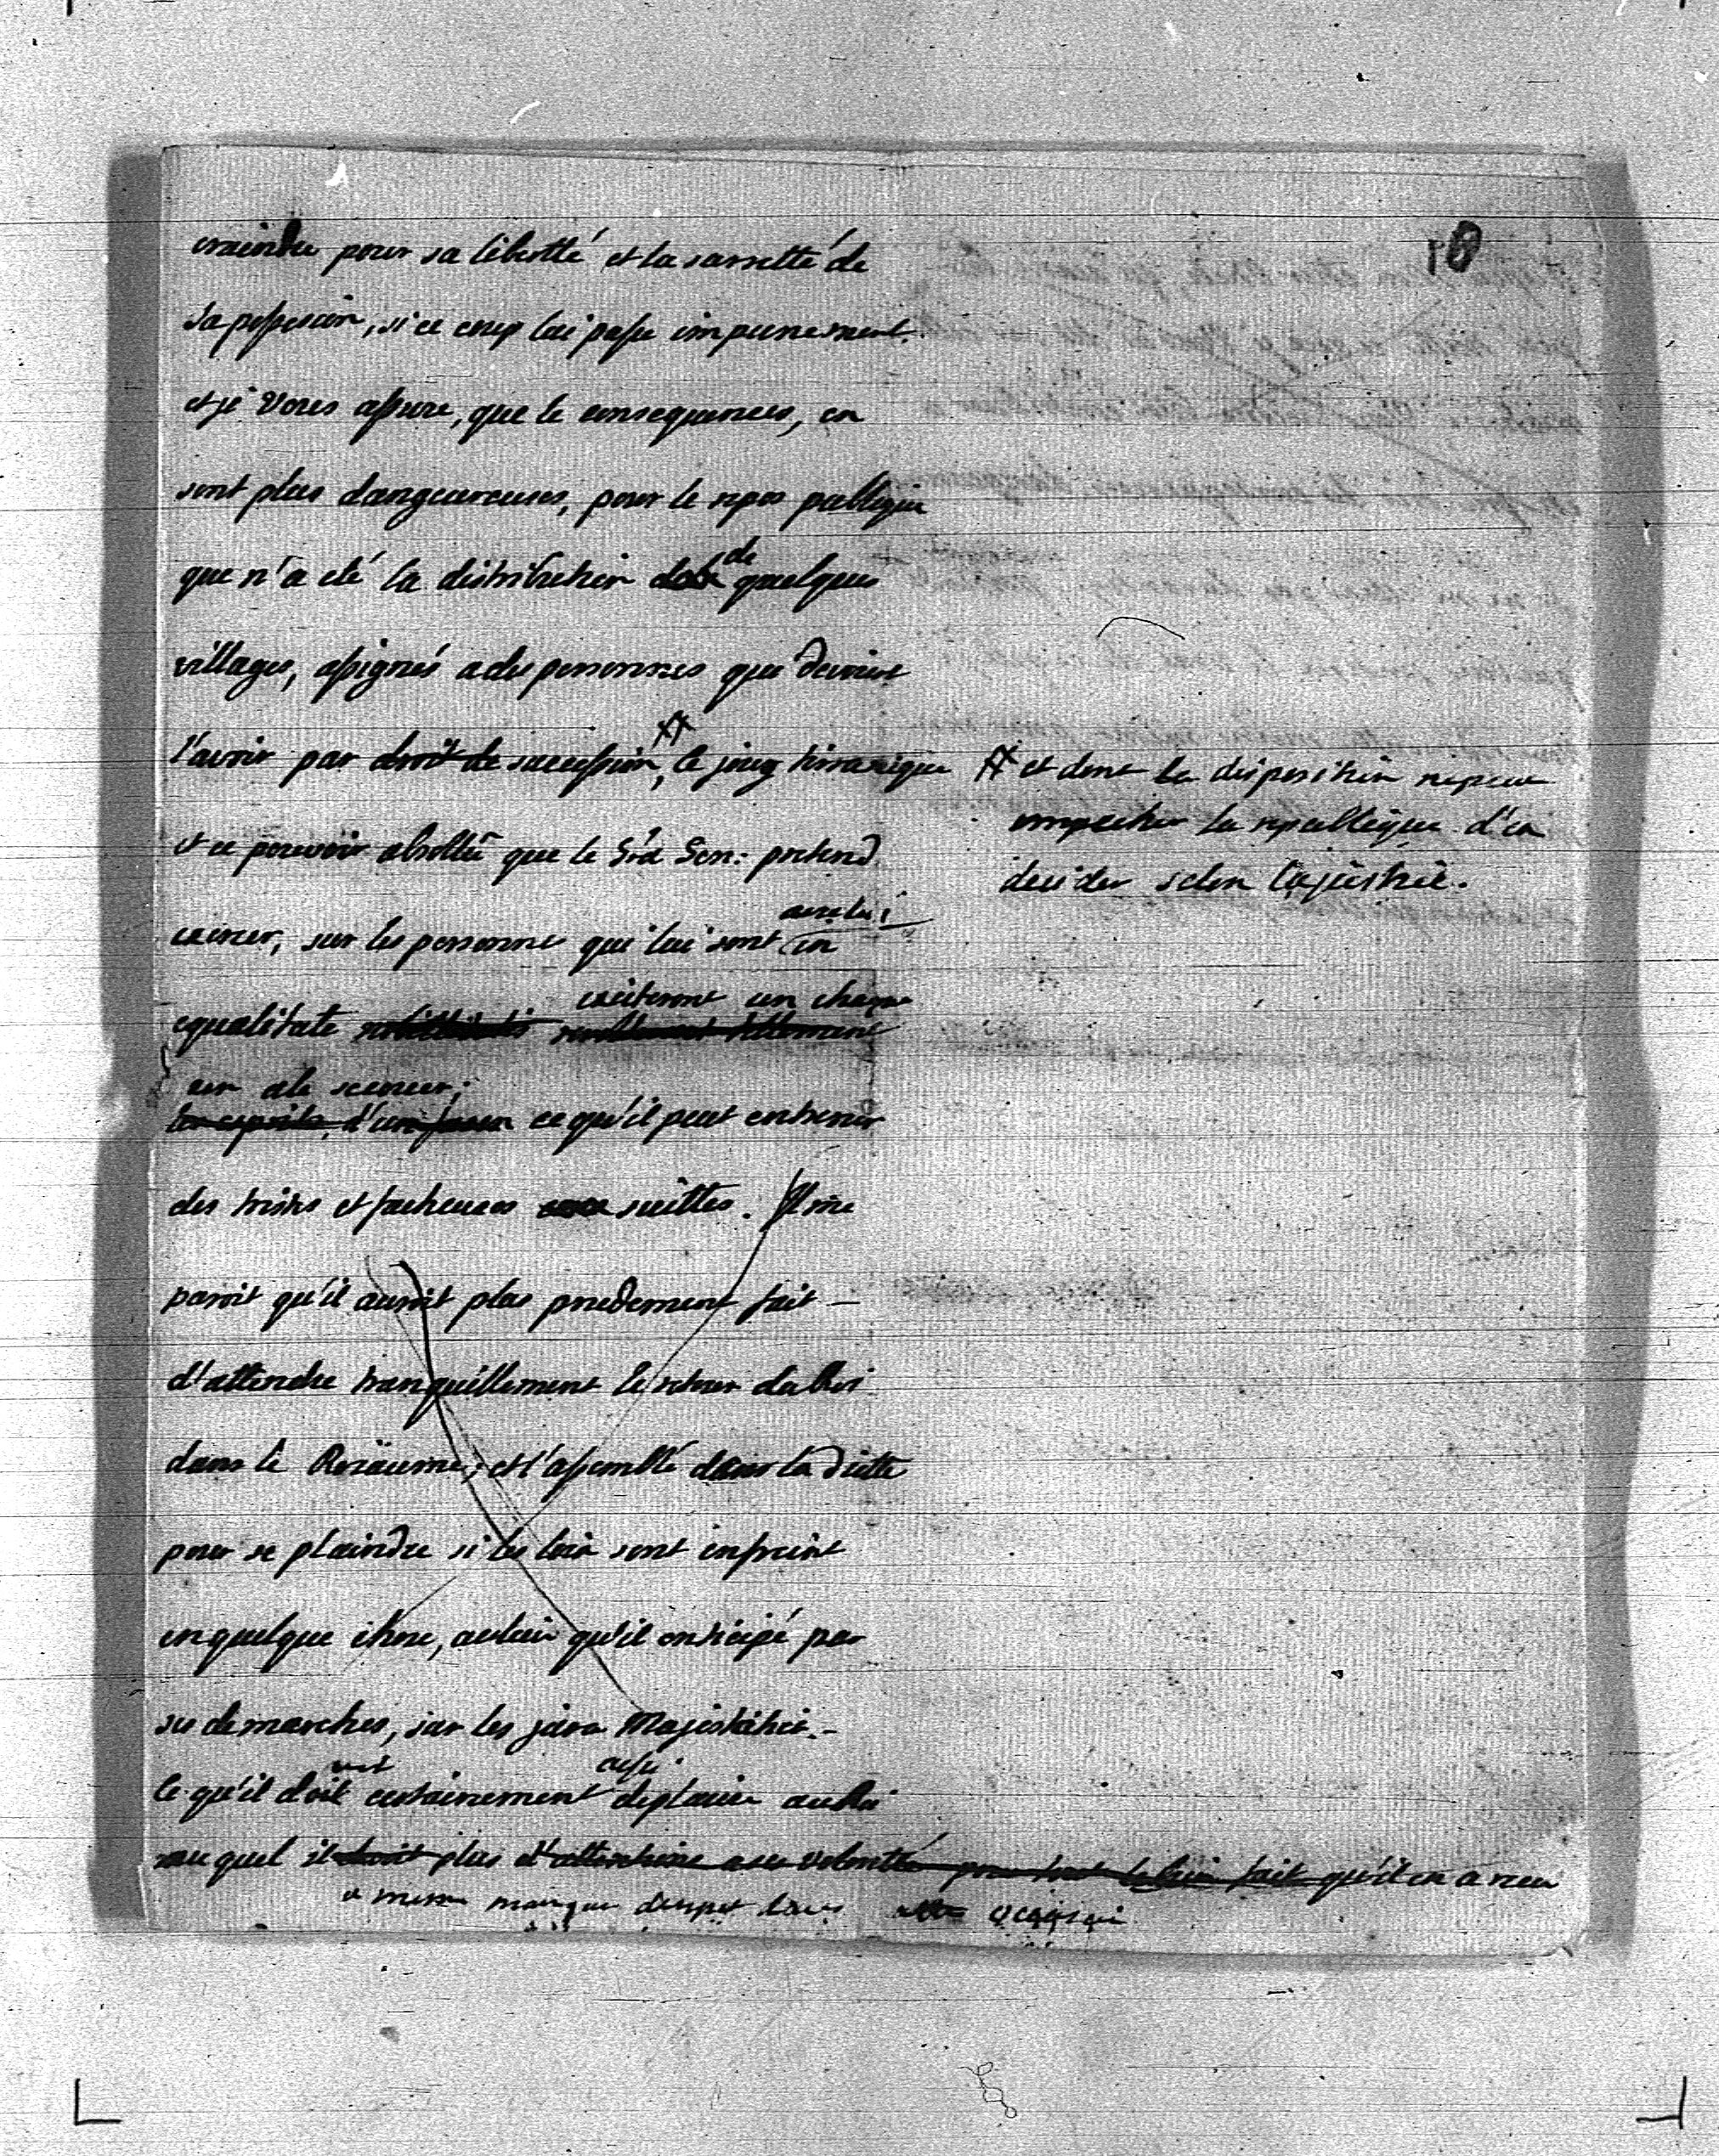 10
craindre pour sa libertté et la sarretté de
sa possesion, si ce coup lui passe impunement.
et je vous assure, que le consequences, en
sont plus dangeureuses, pour le repos publique
que n'a eté la distribution de quelques
villages, assignés a des personnes que devoient
l'avoir par droit de sucession, le joug tirranique
et ce pouvoir absollu que le Grd Gen: pretend
exercer, sur les personnes qui lui sont en
avec lui
equalitate
exciteront un chaqu
un a le
ce qu'il peut entrener
des tristes et facheuses suittes. Il me
paroit qu'il auroit plus prudement fait
d'attendre tranquillement le retour du Roi
dans le Roiaume, et l'assemblé dans la diette
pour se plaindre si les loix sont enfreint
en quelque chose, au lieu qu'il anticipé par
ses demarches, sur les jura Majestatis
aussi
ce qu'il doit certainement deplaire au Roi
au quel il doit plus d'attention a ses volontée pour tout le bien fait qu'il en a receu
et dont la disposition ne peut
empecher la republique d'en
decider selon la justice.